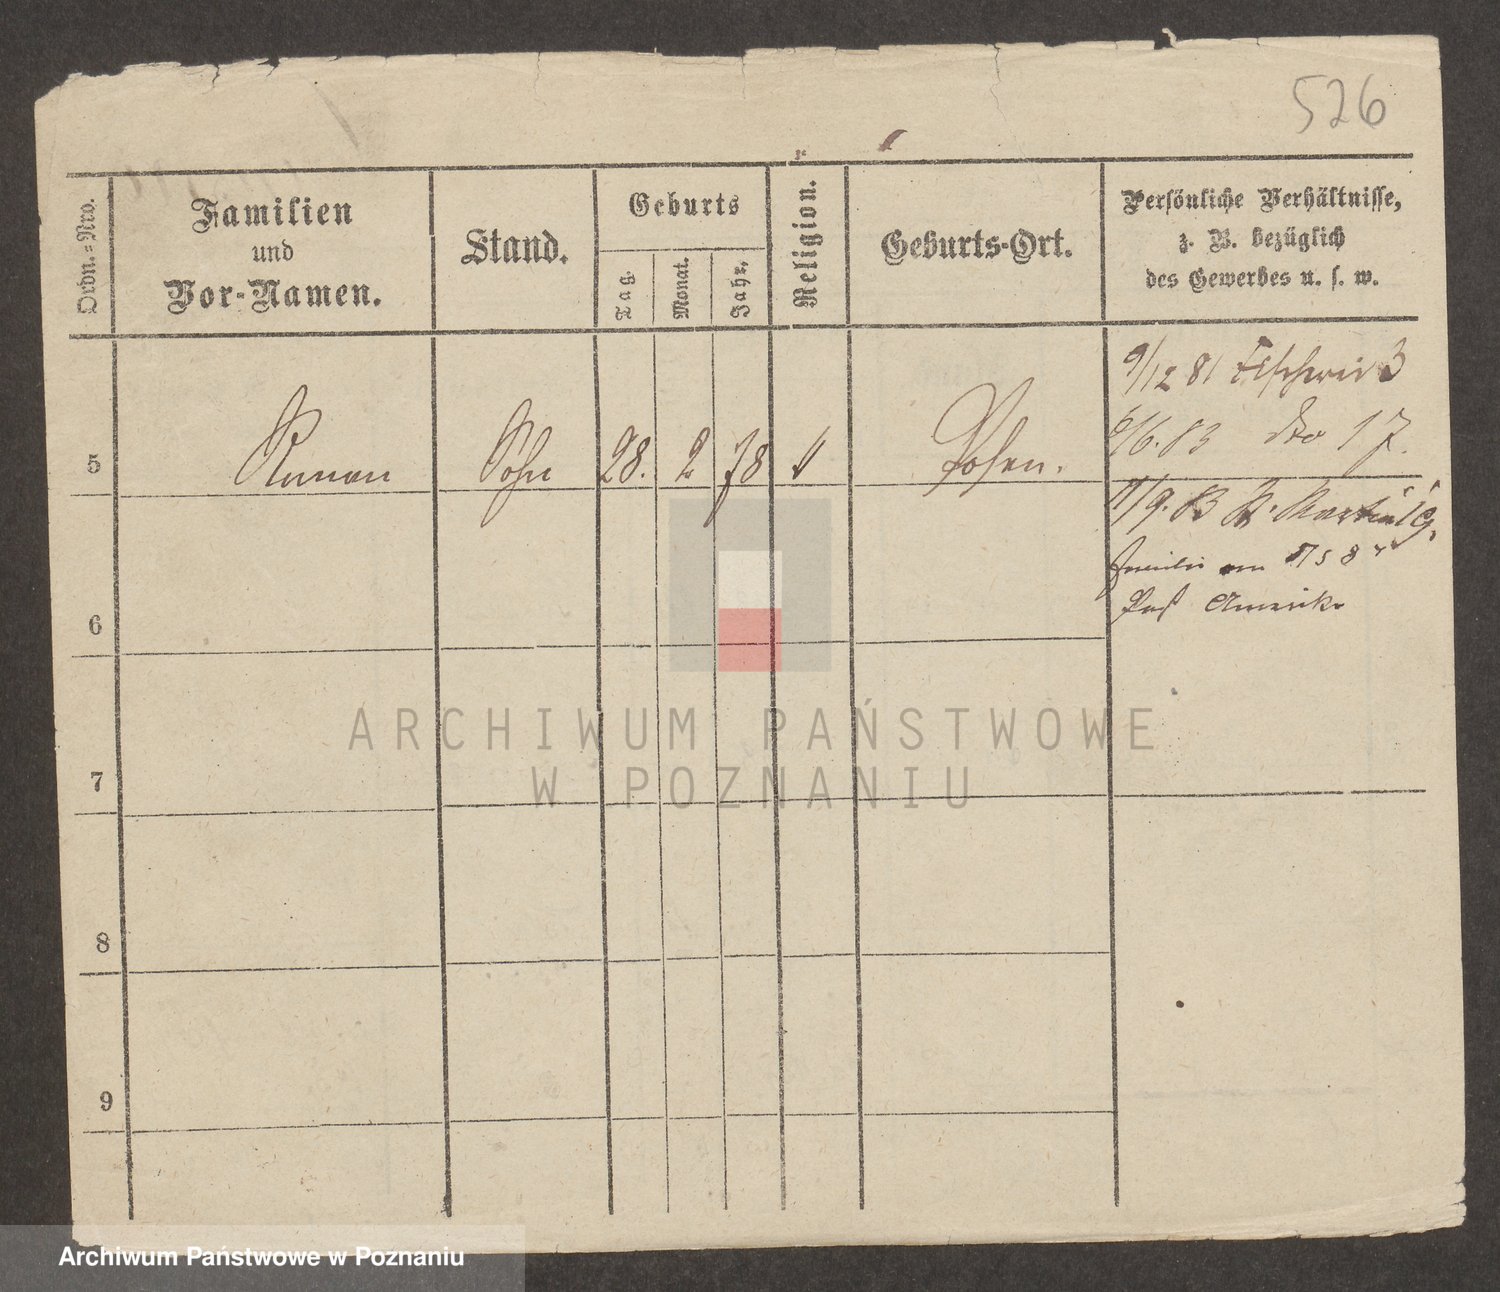 526
Ordn.-Nro.
Familien
und
Vor-Namen.
Stand.
Geburts
Tag.
Monat.
Jahr.
Religion.
Geburts-Ort.
Persönliche Verhältnisse,
z. B. bezüglich
des Gewerbes u. s. w.
5
Roman
Sohn
28.
2
78
Posen.
9/12 81 Fischerei 3
6/6. 83 dto 17.
9. 83 St. Martin
Familie am
Amerika
6
7
8
9
ARCHIWUM PAŃSTWOWE
W POZNANIU
Archiwum Państwowe w Poznaniu